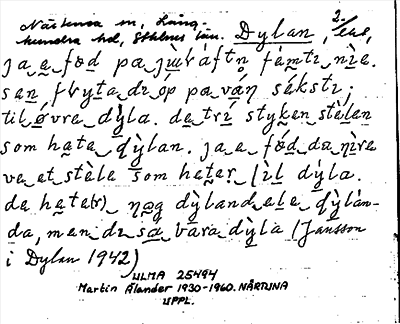 Närtuna sn, Lång-
hundra hd, Sthlms län. Dylan, 2.
ja e fød pa júláftn fémti nie.
sen flyta di op pa van séksti,
til øvre dýla. de tri styken stélen
som heta dỳlan. ja e fód da nire
ve et stèle som heter lìl dýla.
de heta(r) nog dỳland ela dỳlan-
da, men di sá bara dýla (Jansson
i Dylan 1942)
ULMA 25494
Martin Ålander 1930-1960. NÄRTUNA
UPPL.